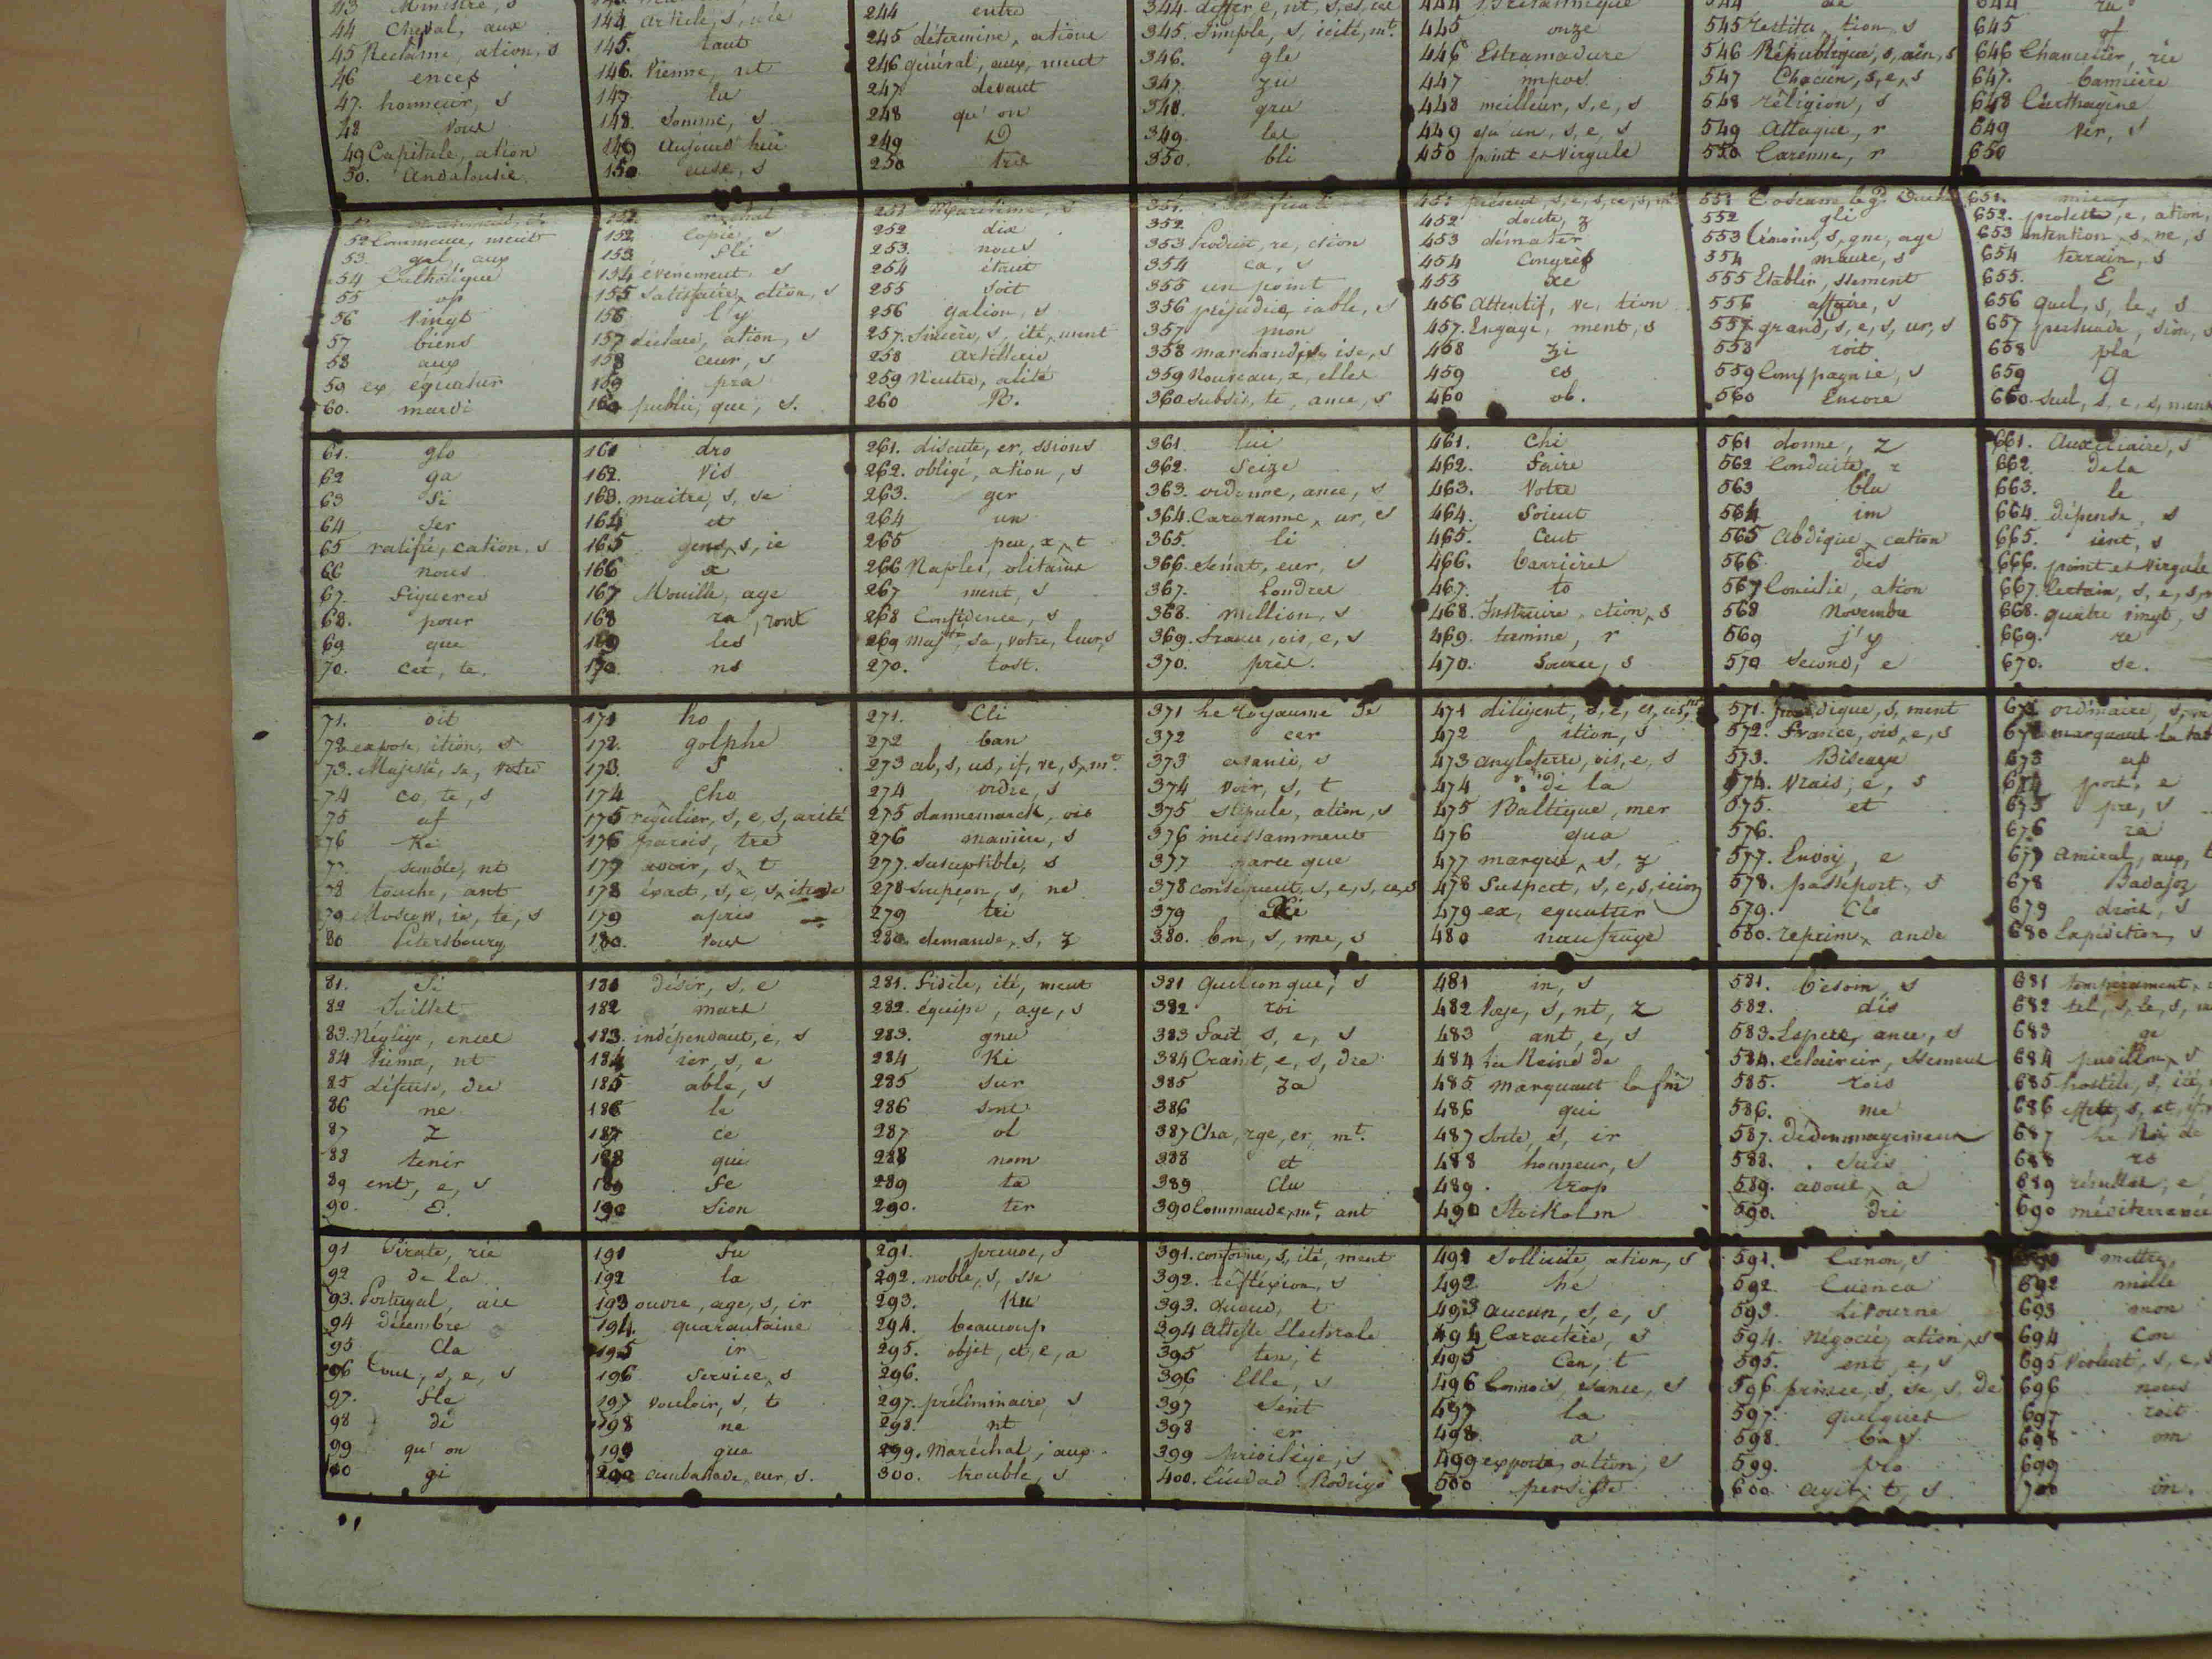 43 Ministre, s
44 Cheval, aux
45 Reclame, ation, s
46 ences
47. honneur, s
48 vous
49 Capitule, ation
50. Andalousie
52 Commence, ment
53. gal, aux
54 Catholique
55 op
56 Vingt
57 biens
58 aux
59 ex, équatur
60. mardi
61. glo
62 ga
63 Si
64 ser
65 ratifie, cation, s
66 nous
67. figueres
68. pour
69 que
70. cet, te.
71. oit
72 expose, ition, s
73. Majesté, sa, votre
74 co, te, s
75 af
76 Ke
77. semble, nt
78 touche, ant
79 Moscow, ie, te, s
80 Petersbourg
82 Juillet
83. Néglige, ences
84 Prime, nt
85 défense, dre
86 ne
87 Z
88 tenir
89 ent, e, s
90. E.
91 Pirate, rie
92 de la
93. Portugal, aie
94 décembre
95 Cla
96 tout, s, e, s
97. fla
98 de
99 qu'on
100 gi
144 article, s, ulé
145. tant
146. Vienne, nt
147. lu
148. Somme, s
149 Aujourd'hui
150. euse, s
152. Copie, s
153 fli
154 événement, s
155 Satisfaire, ction, s
156 l'y
157 déclare, ation, s
158 ceur, s
159 pra
160 public, que, s.
161 dro
162. Vis
163. maitre, s, se
164 et
165 gens, s, ie
166 a
167 Mouille, age
168 ra, ront
169 les
170. ns
171 ho
172. golphe
173. f
174 Cho
175 régulier, s, e, s, arité
176 parois, tre
177 avoir, s, t
178 exact, s, e, s, itude
179 après
180. vous
181 désir, s, e
182 mars
183. indépendant, e, s
184 ier, s, e
185 able, s
186 le
187 ce
188 qui
189 fe
190 sion
191 fu
192 la
193 ouvre, age, s, ir
194. quarantaine
195 ir
196 service, s
197 vouloir, s, t
198 ne
199 gue
200 ambassade, eur, s.
244 entre
245 détermine, ations
246 général, aux, ment
247 devant
248 qu'on
249 D
250 tre
251 Maritime, s
252 dix
253. nous
254 étoit
255 soit
256 galion, s
257. Sincère, s, ité, ment
258 artillerie
259 Neutre, alité
260 R.
261. discute, er, ssions
262. obligé, ation, s
263. ger
264 un
265 peu, x, t
266 Naples, olitains
267 ment, s
268 Confidence, s
269 Majté, sa, votre, leurs
270. tost.
271. Cli
272 ban
273 ab, s, us, if, ve, s, mt.
274 ordre, s
275 dannemarck, ois
276 maniere, s
277. Susceptible, s
278 Soupçon, s, ne
279 tri
280. demande, s, z
281. fidèle, ité, ment
282. équipe, age, s
283. gne
284 Ki
285 sur
286 sont
287 ol
288 nom
289 ta
290. ter
291. preuve, s
292. noble, s, sse
293. Ku
294. beaucoup
295. objet, et, e, a
296.
297. préliminaire, s
298. nt
299. Maréchal, aux
300. trouble, s
344. differe, nt, s, es, ce
345. Simple, s, icité, mt.
346. gle
347. zu
348. gru
349. les
350. bli
352.
353 Produit, re, ction
354 ca, s
355 un point
356 préjudice, iable, s
357 mon
358 marchand, s, ise, s
359 Nouveau, x, elles
360 subsis, te, ance, s
361 lui
362. Seize
363. ordonne, ance, s
364. Caravanne, ur, s
365. li
366. Sénat, eur, s
367. Londres
368. million, s
369. france, ois, e, s
370. près.
371 Le Royaume de
372 cer
373 avanie, s
374 voir, s, t
375 stipule, ation, s
376 incessamment
377 parceque
378 conséquent, s, e, s, ce, s
379 xi
380. bon, s, nne, s
381 quelconque, s
382 roi
383 fait, s, e, s
384 Craint, e, s, dre
385 za
386
387 Cha, rge, er, mt.
388 et
389 Clu
390 Commande, mt, ant
391. conforme, s, ité, ment
392. réflexion, s
394 Altesse Electorale
395 ten, t
396 Elle, s
397 sent
398 er
399 privilège, s
400. Ciudad Rodrigo
444 Britannique
445 onze
446 Estramadure
447 impos
448 meilleur, s, e, s
449 qu'un, s, e, s
450 point et virgule
451 présent, s, e, s, ce, s, mt
452 doute, z
453 démater
454 Congrès
455 xe
456 Attentif, ve, tion
457. Engage, ment, s
458 zi
459 es
460 ob.
461. Chi
462. faire
463. Votre
464. Soient
465. Cent
466. barrières
467. to
468. Instruire, ction, s
469. termine, r
470. Source, s
471 diligent, s, e, es, ces, mt
472 ition, s
473 angleterre, ois, e, s
474 de la
475 Baltique, mer
476 qua
477 marque, s, z
478 Suspect, s, e, s, icion
479 ex, equatur
480 naufrage
481 in, s
482 Paye, s, nt, z
483 ant, e, s
484 La Reine de
485 marquant la fin
486 qui
487 sorte, s, ir
488 honneur, s
489. trop
490 Stockolm
491 Sollicite, ation, s
492. he
493 aucun, s, e, s
494 Caractère, s
495 Cen, t
496 Connois, sance, s
497 la
498. a
499 exporte, ation, s
500 persiste
545 restitu, tion, s
546 République, s, ain, s
547 Chacun, s, e, s
548 réligion, s
549 Attaque, r
550 Carenne, r
551 Toscane le gd. Duché
552 gli
553 témoin, s, gne, age
554 maure, s
555 Etablir, ssement
556 affaire, s
557 grand, s, e, s, ur, s
558 roit
559 Compagnie, s
560 Encore
561 donne, z
562 Conduite, r
563 blu
564 im
565 Abdique, cation
566 des
567 Concilie, ation
568 Novembre
569 j'y
570 Second, e
572. france, ois, e, s
573. Biscaye
574. Vrais, e, s
575. et
576.
577. Envoy, e
578. passeport, s
579. Clo
580. reprim, ande
581. besoin, s
582. dis
583. Espere, ance, s
584. eclaircir, ssement
585. rois
586. me
587. dédommagement
588. suis
589. avoue, a
590. dri
591. Canon, s
592. Cuenca
593. Livourne
594. Négocie, ation, s
595. ent, e, s
596 prince, s, sse, s, de
597. quelques
598. bas
599. plo
600 agit, t, s
645 of
646 Chancelier, rie
647. bannière
648 Carthagène
649 ver, s
650
652. proteste, e, ation,
653 intention, s, ne, s
654 terrain, s
655. E
656 quel, s, le, s
657 persuade, sion, s
658 pla
659 g
660. seul, s, e, s, ment
661. Auxiliaire, s
662. dela
663. le
664. dépense, s
665. ient, s
666. point et virgule
667. Certain, s, e, s,
668. quatre vingt, s
669. re
670. se.
671 ordinaire, s,
672 marquant la
673 ap
674 port, e
675 pre, s
676 ra
677 Amiral, aux,
678 Badajoz
679 droit, s
680 Expédition, s
681 tempérament,
682 tel, s, le, s,
683 ge
684 pavillon, s
685 hostile, s, ité,
686 effet, s, et,
687 Le Roi de
688 ro
689 résulte, e
690 méditerranée
691 mettre,
692 mille
693 mon
694 Con
695 Violent, s, e, s
696 nous
697 roit
698 om
699
700 on.